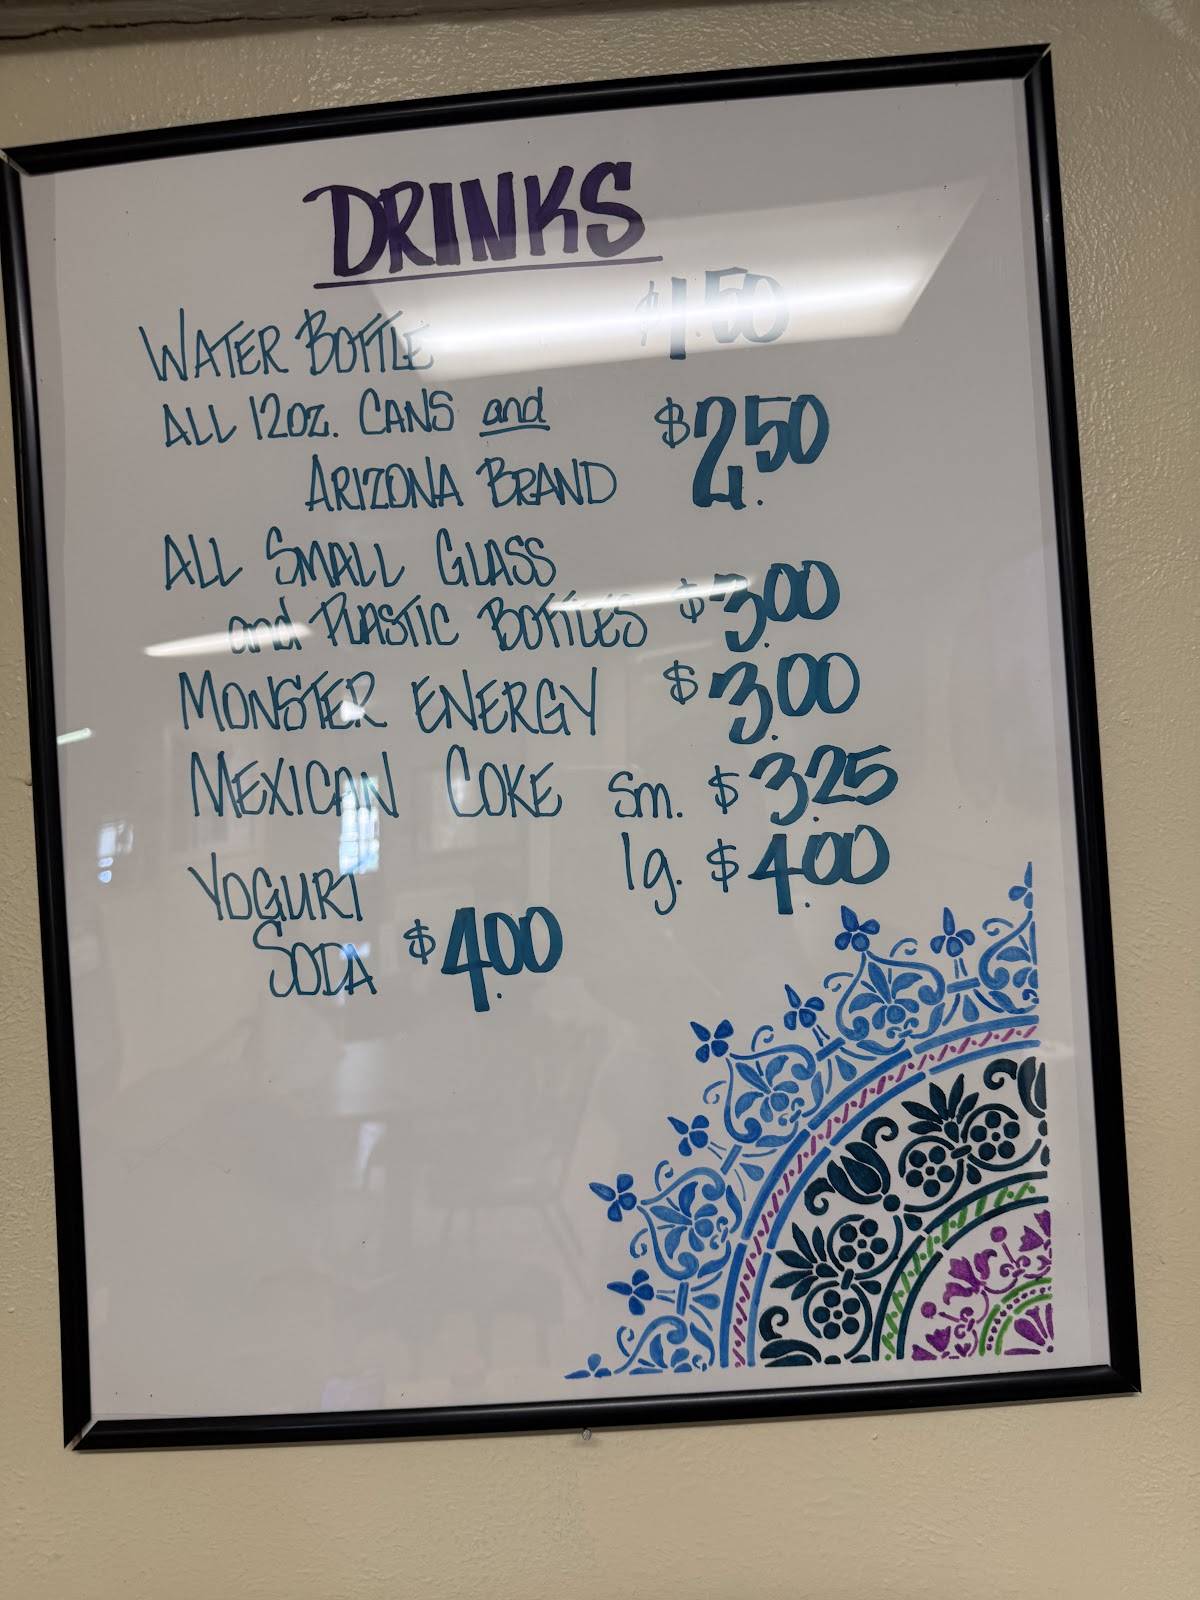 DRINKS
WATER BOTTLE $1.50
ALL 12oz. CANS and
ARIZONA BRAND $2.50
ALL SMALL GLASS
and PLASTIC BOTTLES $3.00
MONSTER ENERGY $3.00
MEXICAN COKE Sm. $3.25
lg. $4.00
YOGURT
SODA $4.00